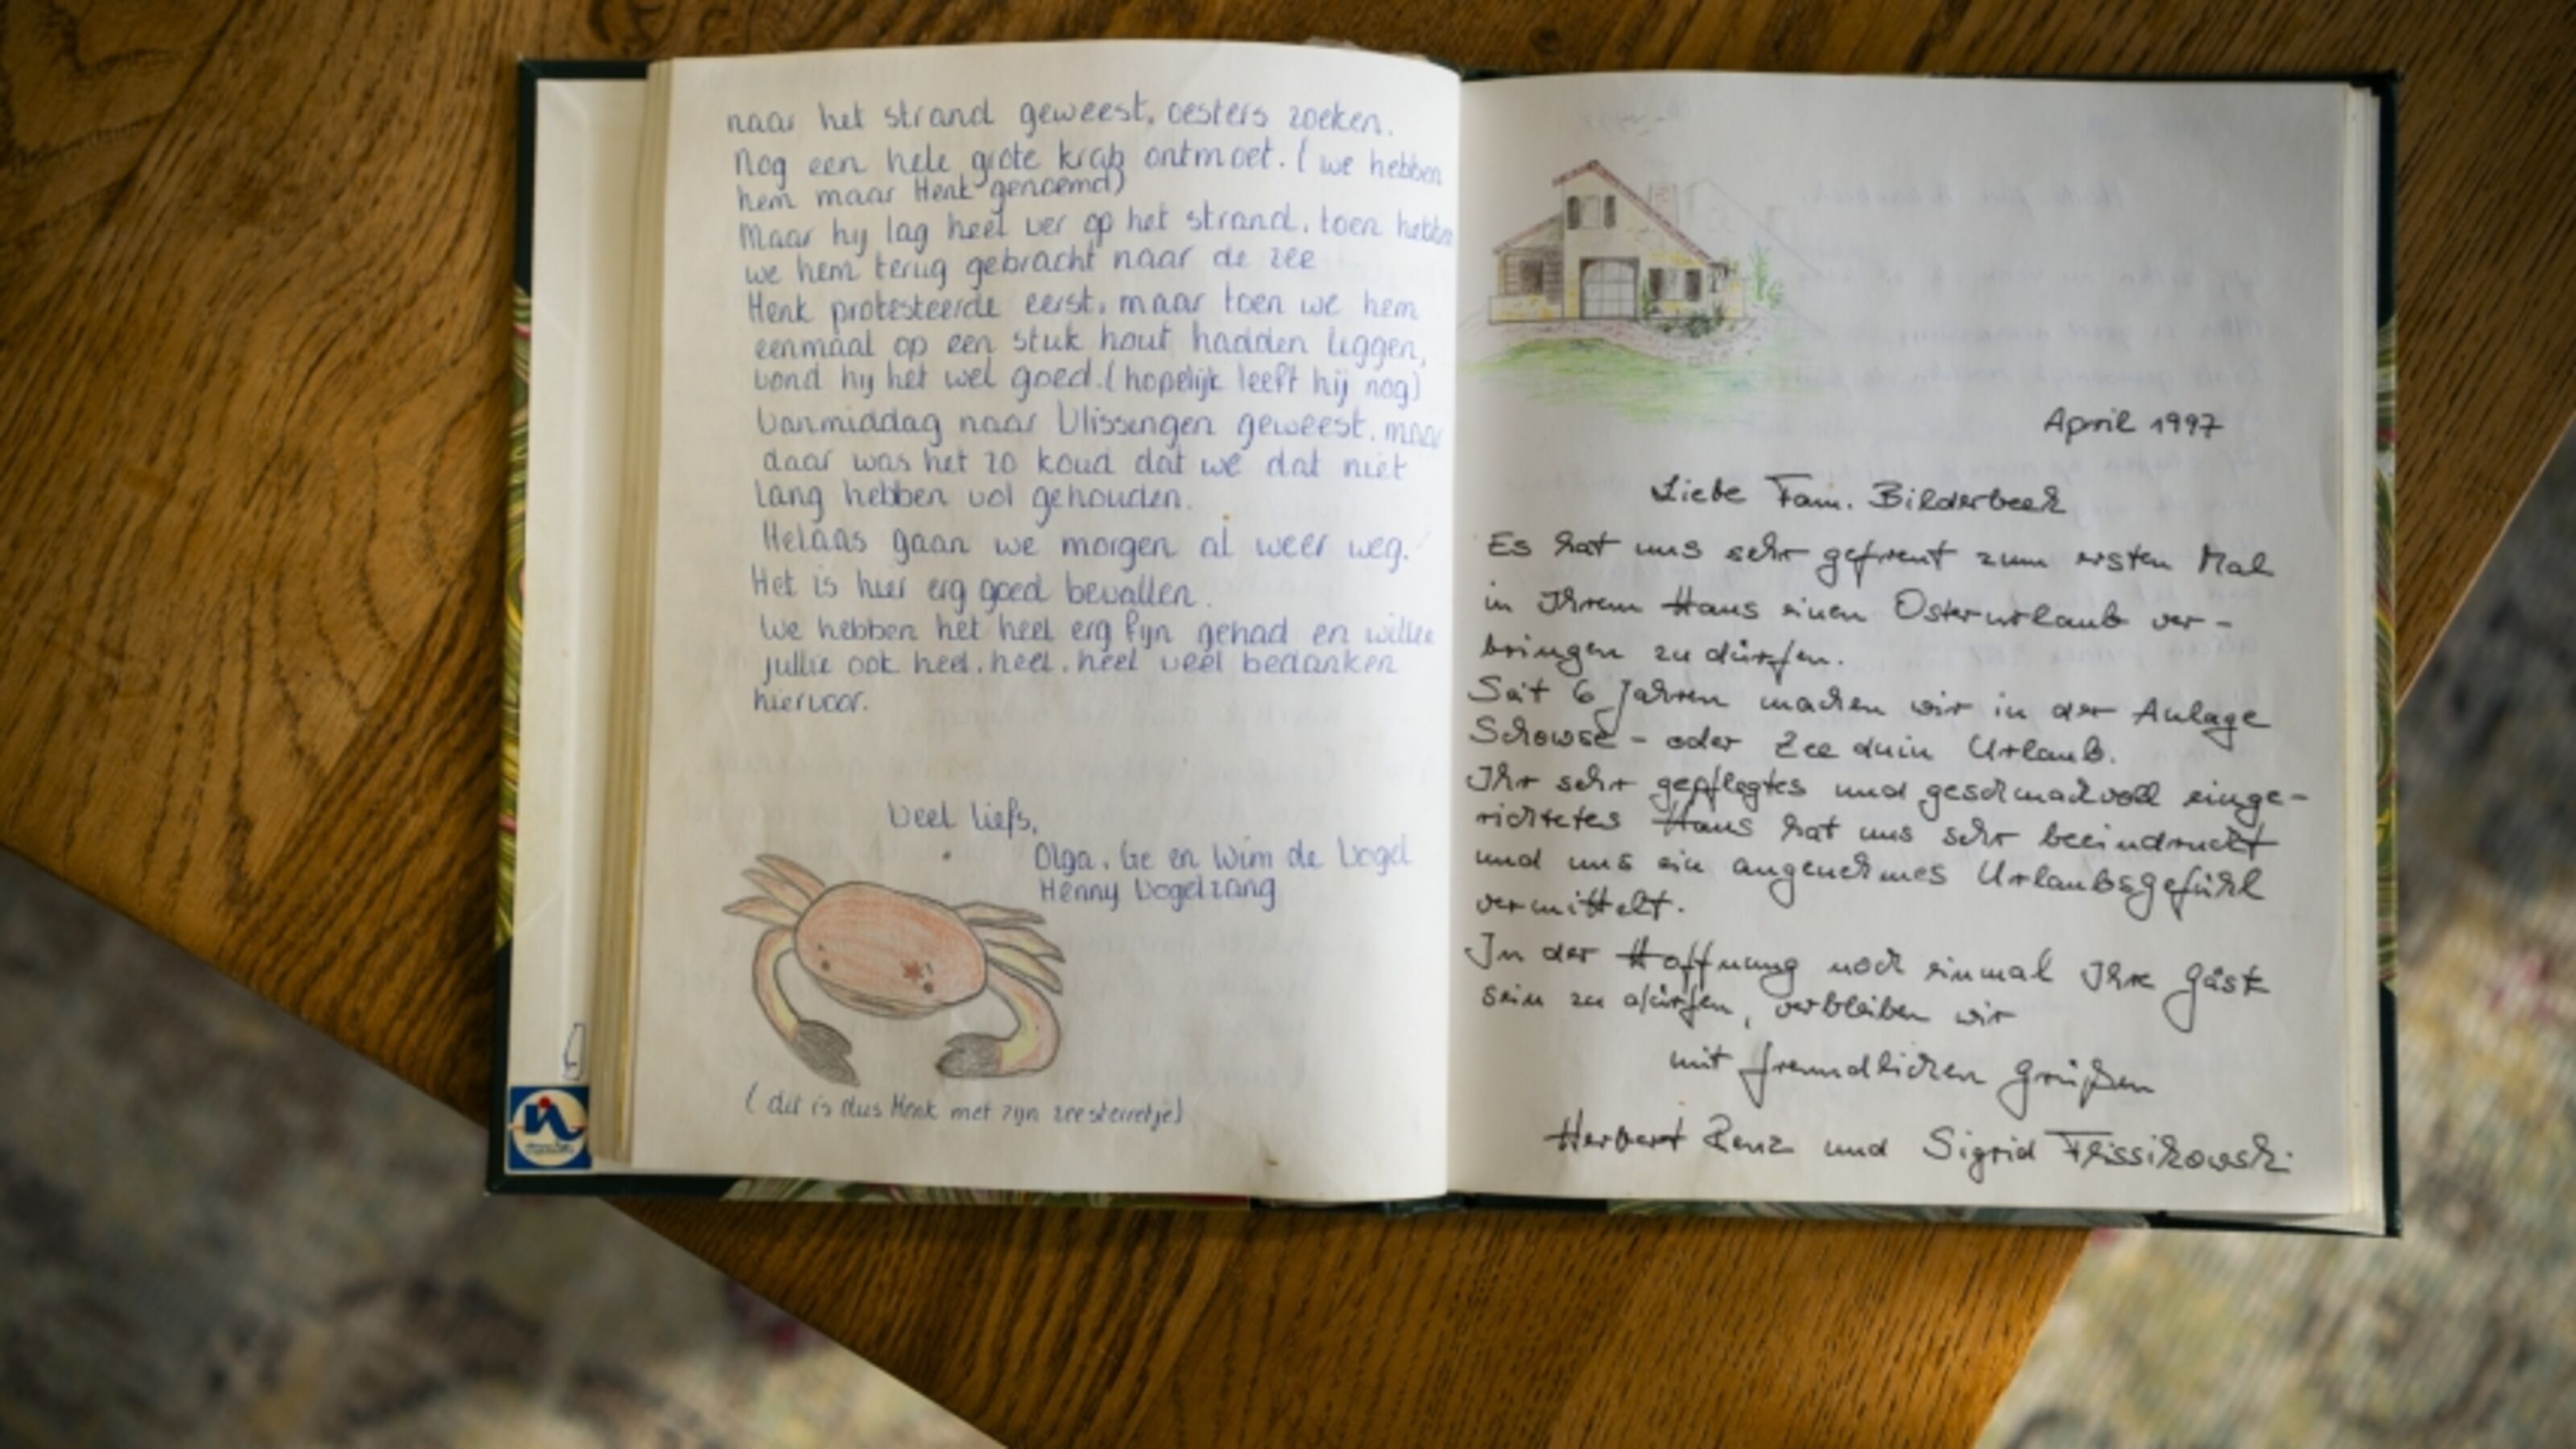 naar het strand geweest, oesters zoeken.
Nog een hele grote krab ontmoet. (we hebben
hem maar Henk genoemd)
Maar hij lag heel ver op het strand, toen hebben
we hem terug gebracht naar de zee
Henk protesteerde eerst, maar toen we hem
eenmaal op een stuk hout hadden liggen,
vond hij het wel goed. (hopelijk leeft hij nog)
Vanmiddag naar Vlissingen geweest, maar
daar was het zo koud dat we dat niet
lang hebben vol gehouden.
Helaas gaan we morgen al weer weg.
Het is hier erg goed bevallen.
We hebben het heel erg fijn gehad en willen
jullie ook heel, heel, heel veel bedanken
hiervoor.
Veel liefs,
Olga, Ge en Wim de Vogel
Henny Vogelzang
(dit is dus Henk met zijn zeesterretje)
April 1997
Liebe Fam. Bilderbeek
Es hat uns sehr gefreut zum ersten Mal
in Ihrem Haus einen Osterurlaub ver-
bringen zu dürfen.
Seit 6 Jahren machen wir in der Anlage
Schowse - oder Zee duin Urlaub.
Ihr sehr gepflegtes und geschmackvoll einge-
richtetes Haus hat uns sehr beeindruckt
und uns ein angenehmes Urlaubsgefühl
vermittelt.
In der Hoffnung noch einmal Ihre Gäste
sein zu dürfen, verbleiben wir
mit freundlichen Grüßen
Herbert Renz und Sigrid